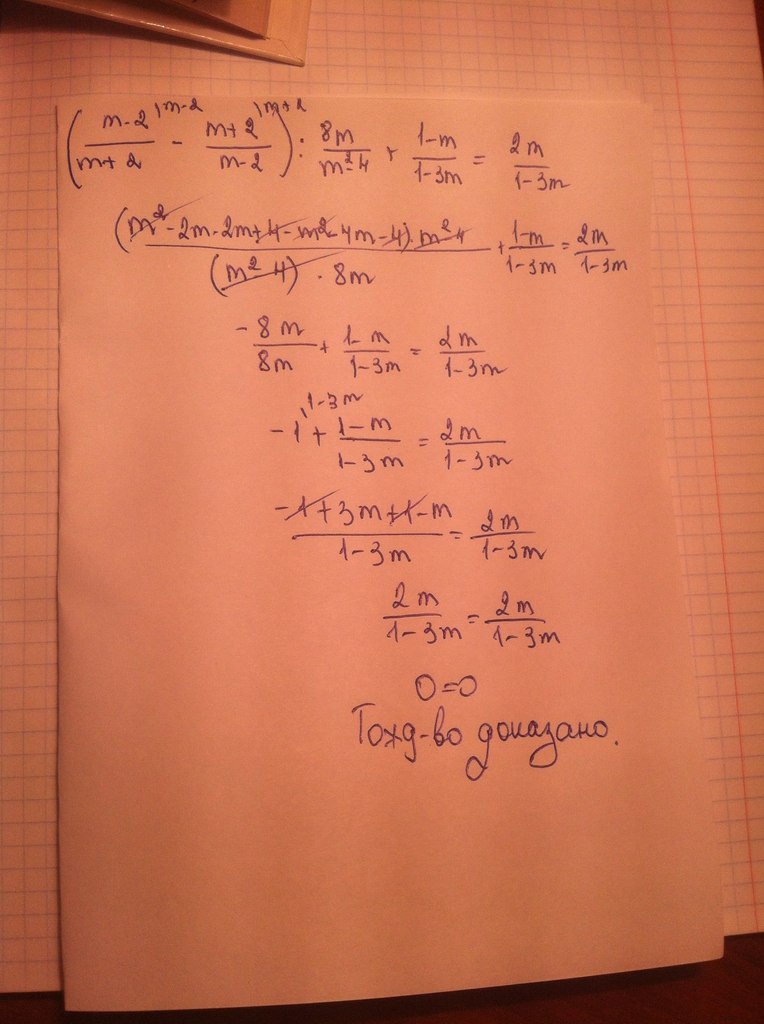 (m-2/m+2 \m-2 - m+2/m-2 \m+2) : 8m/m²-4 + 1-m/1-3m = 2m/1-3m
(m²-2m-2m+4-m²-4m-4)·m²-4/(m²-4)·8m + 1-m/1-3m = 2m/1-3m
-8m/8m + 1-m/1-3m = 2m/1-3m
-1 \1-3m + 1-m/1-3m = 2m/1-3m
-1+3m+1-m/1-3m = 2m/1-3m
2m/1-3m = 2m/1-3m
0=0
Тожд-во доказано.